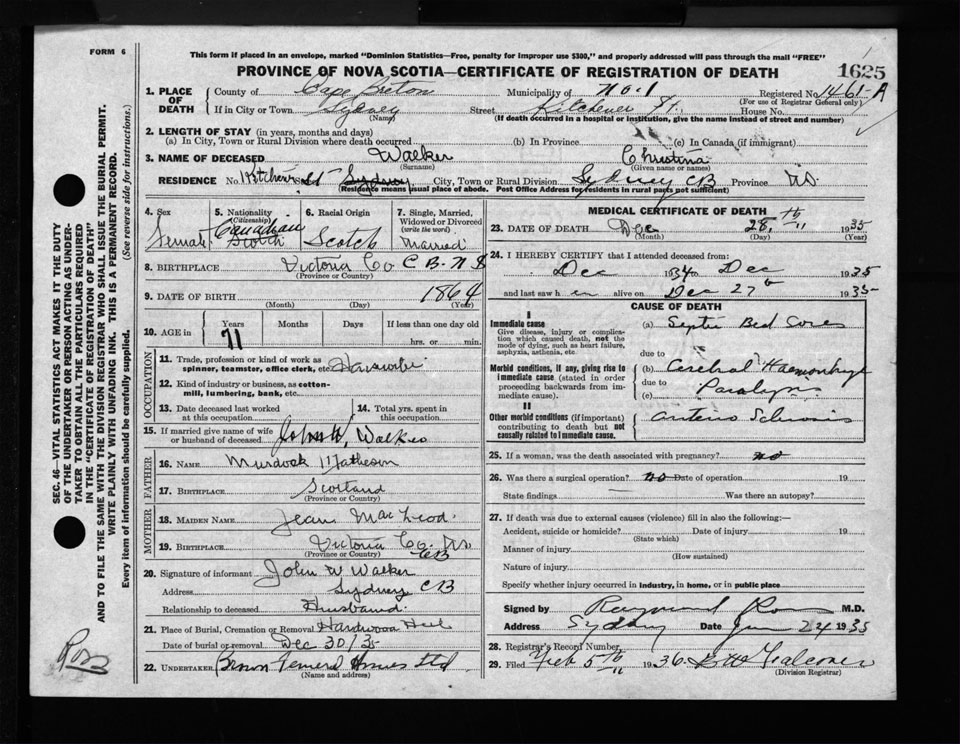 FORM 6
This form if placed in an envelope, marked "Dominion Statistics—Free, penalty for improper use $300," and properly addressed will pass through the mail "FREE"
PROVINCE OF NOVA SCOTIA—CERTIFICATE OF REGISTRATION OF DEATH
1625
1. PLACE OF DEATH
County of Cape Breton Municipality of No. 1 Registered No. 1461-A
(For use of Registrar General only)
If in City or Town Sydney Street Kitchener St. House No.
(Name) (If death occurred in a hospital or institution, give the name instead of street and number)
2. LENGTH OF STAY (in years, months and days)
(a) In City, Town or Rural Division where death occurred (b) In Province (c) In Canada (if immigrant)
3. NAME OF DECEASED Walker Christina
(Surname) (Given name or names)
RESIDENCE No. Kitchener St Sydney City, Town or Rural Division Sydney CB Province NS
(Residence means usual place of abode. Post Office Address for residents in rural parts not sufficient)
4. Sex Female
5. Nationality (Citizenship) Canadian Scotch
6. Racial Origin Scotch
7. Single, Married, Widowed or Divorced (write the word) Married
8. BIRTHPLACE Victoria Co C.B. N S
(Province or Country)
9. DATE OF BIRTH 1864
(Month) (Day) (Year)
10. AGE in Years Months Days If less than one day old
71 hrs. or min.
OCCUPATION
11. Trade, profession or kind of work as spinner, teamster, office clerk, etc. Housewife
12. Kind of industry or business, as cotton-mill, lumbering, bank, etc.
13. Date deceased last worked at this occupation
14. Total yrs. spent in this occupation
15. If married give name of wife or husband of deceased John W. Walker
FATHER
16. NAME Murdock Matheson
17. BIRTHPLACE Scotland
(Province or Country)
MOTHER
18. MAIDEN NAME Jean MacLeod
19. BIRTHPLACE Victoria Co. NS CB
(Province or Country)
20. Signature of informant John W Walker
Address Sydney CB
Relationship to deceased Husband
21. Place of Burial, Cremation or Removal Hardwood Hill
Date of burial or removal Dec 30/35
22. UNDERTAKER Funeral Homes Ltd
(Name and address)
MEDICAL CERTIFICATE OF DEATH
23. DATE OF DEATH Dec 28th 1935
(Month) (Day) (Year)
24. I HEREBY CERTIFY that I attended deceased from:
Dec 1934 to Dec 1935
and last saw h er alive on Dec 27th 1935
CAUSE OF DEATH
I
Immediate cause
Give disease, injury or complication which caused death, not the mode of dying, such as heart failure, asphyxia, asthenia, etc.
(a) Septic Bed Sores
due to
Morbid conditions, if any, giving rise to immediate cause (stated in order proceeding backwards from immediate cause).
(b) Cerebral Haemorrhage
due to
(c) Paralysis
II
Other morbid conditions (if important) contributing to death but not causally related to immediate cause.
Arterio Sclerosis
25. If a woman, was the death associated with pregnancy? no
26. Was there a surgical operation? no Date of operation 19
State findings Was there an autopsy?
27. If death was due to external causes (violence) fill in also the following:—
Accident, suicide or homicide? Date of injury 19
(State which)
Manner of injury
(How sustained)
Nature of injury
Specify whether injury occurred in industry, in home, or in public place
Signed by Raymond Ross M.D.
Address Sydney Date Jan 24 1935
28. Registrar's Record Number
29. Filed Feb 5th 1936 Falconer
(Division Registrar)
SEC. 46—VITAL STATISTICS ACT MAKES IT THE DUTY
OF THE UNDERTAKER OR PERSON ACTING AS UNDER-
TAKER TO OBTAIN ALL THE PARTICULARS REQUIRED
IN THE "CERTIFICATE OF REGISTRATION OF DEATH"
AND TO FILE THE SAME WITH THE DIVISION REGISTRAR WHO SHALL ISSUE THE BURIAL PERMIT.
WRITE PLAINLY WITH UNFADING INK. THIS IS A PERMANENT RECORD.
Every item of information should be carefully supplied. (See reverse side for instructions.)
Ross